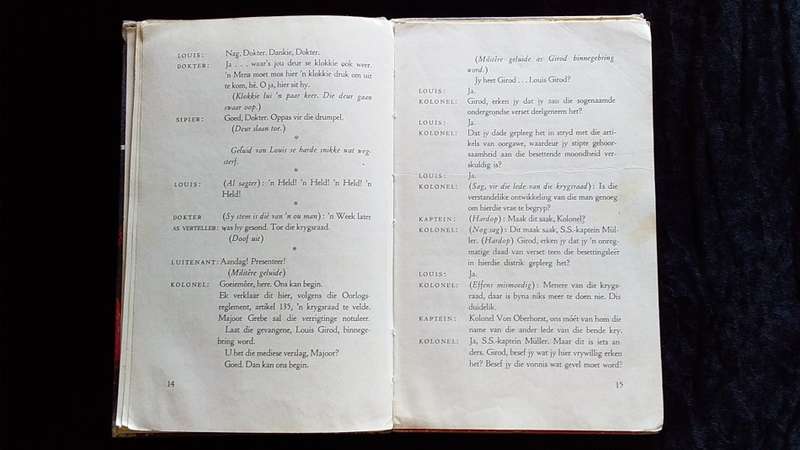 LOUIS: Nag, Dokter. Dankie, Dokter.
DOKTER: Ja . . . waar's jou deur se klokkie ook weer.
'n Mens moet mos hier 'n klokkie druk om uit
te kom, hè. O ja, hier sit hy.
(Klokkie lui 'n paar keer. Die deur gaan
swaar oop.)
SIPIER: Goed, Dokter. Oppas vir die drumpel.
(Deur slaan toe.)
*
Geluid van Louis se harde snikke wat weg-
sterf.
*
LOUIS: (Al sagter): 'n Held! 'n Held! 'n Held! 'n
Held!
*
DOKTER (Sy stem is dié van 'n ou man): 'n Week later
AS VERTELLER: was hy gesond. Toe die krygsraad.
(Doof uit)
*
LUITENANT: Aandag! Presenteer!
(Militêre geluide)
KOLONEL: Goeiemôre, here. Ons kan begin.
Ek verklaar dit hier, volgens die Oorlogs-
reglement, artikel 135, 'n krygsraad te velde.
Majoor Grebe sal die verrigtinge notuleer.
Laat die gevangene, Louis Girod, binnege-
bring word.
U het die mediese verslag, Majoor?
Goed. Dan kan ons begin.
14
(Militêre geluide as Girod binnegebring
word.)
Jy heet Girod . . . Louis Girod?
LOUIS: Ja.
KOLONEL: Girod, erken jy dat jy aan die sogenaamde
ondergrondse verset deelgeneem het?
LOUIS: Ja.
KOLONEL: Dat jy dade gepleeg het in stryd met die arti-
kels van oorgawe, waardeur jy stipte gehoor-
saamheid aan die besettende moondheid ver-
skuldig is?
LOUIS: Ja.
KOLONEL: (Sag, vir die lede van die krygsraad): Is die
verstandelike ontwikkeling van die man genoeg
om hierdie vrae te begryp?
KAPTEIN: (Hardop): Maak dit saak, Kolonel?
KOLONEL: (Nog sag): Dit maak saak, S.S.-kaptein Mül-
ler. (Hardop) Girod, erken jy dat jy 'n onreg-
matige daad van verset teen die besettingsleër
in hierdie distrik gepleeg het?
LOUIS: Ja.
KOLONEL: (Effens mismoedig): Menere van die krygs-
raad, daar is byna niks meer te doen nie. Dis
duidelik.
KAPTEIN: Kolonel Von Oberhorst, ons móét van hom die
name van die ander lede van die bende kry.
KOLONEL: Ja, S.S.-kaptein Müller. Maar dit is iets an-
ders. Girod, besef jy wat jy hier vrywillig erken
het? Besef jy die vonnis wat gevel moet word?
15